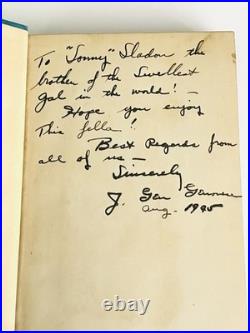 To "Sonny" Sladon the
brother of the Swellest
gal in the world! –
Hope you enjoy
This fella!
Best Regards from
all of us –
Sincerely
J.
Aug. 1945